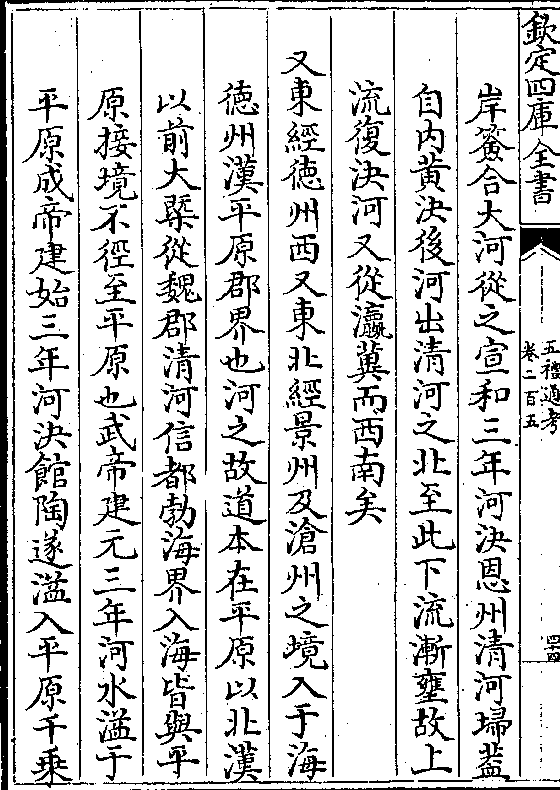 欽定四庫全書
五禮通考
卷二百五
四十四
岸簽合大河從之宣和三年河決恩州清河埽蓋
自内黄決後河出清河之北至此下流漸壅故上
流復決河又從瀛冀而西南矣
又東經徳州西又東北經景州及滄州之境入于海
徳州漢平原郡界也河之故道本在平原以北漢
以前大槩從魏郡清河信都勃海界入海皆與平
原接境不徑至平原也武帝建元三年河水溢于
平原成帝建始三年河決館陶遂溢入平原千乗